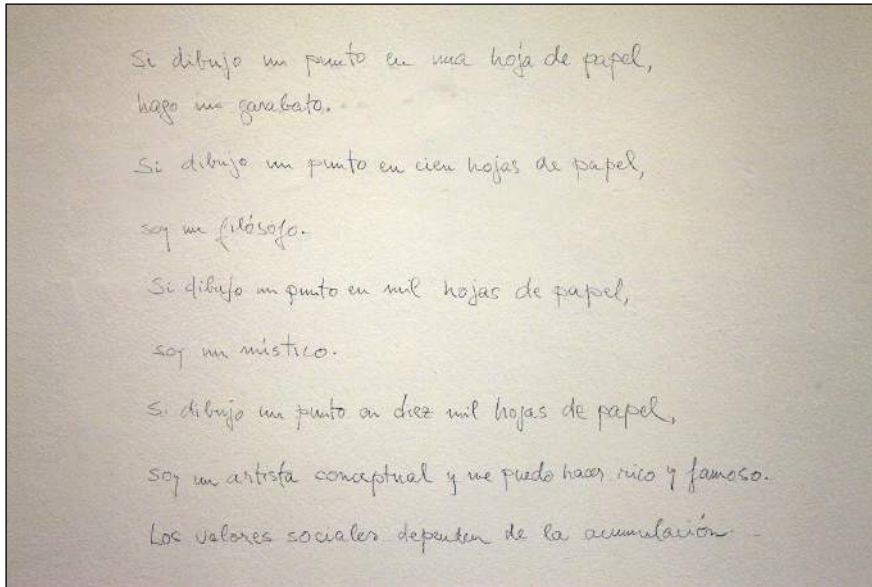 Si dibujo un punto en una hoja de papel,
hago un garabato.
Si dibujo un punto en cien hojas de papel,
soy un filósofo.
Si dibujo un punto en mil hojas de papel,
soy un místico.
Si dibujo un punto en diez mil hojas de papel,
soy un artista conceptual y me puedo hacer rico y famoso.
Los valores sociales dependen de la acumulación.